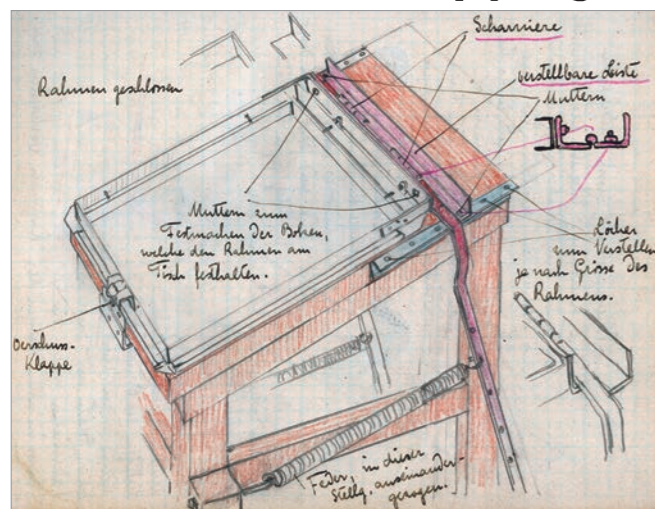 Scharniere
Rahmen geschlossen
verstellbare Leiste
Muttern
Muttern zum
Festmachen der Bolzen,
welche den Rahmen am
Tisch festhalten.
Löcher
zum Verstellen
je nach Grösse des
Rahmens.
Klappe
Feder, in dieser
Stellg. auseinander-
gezogen.